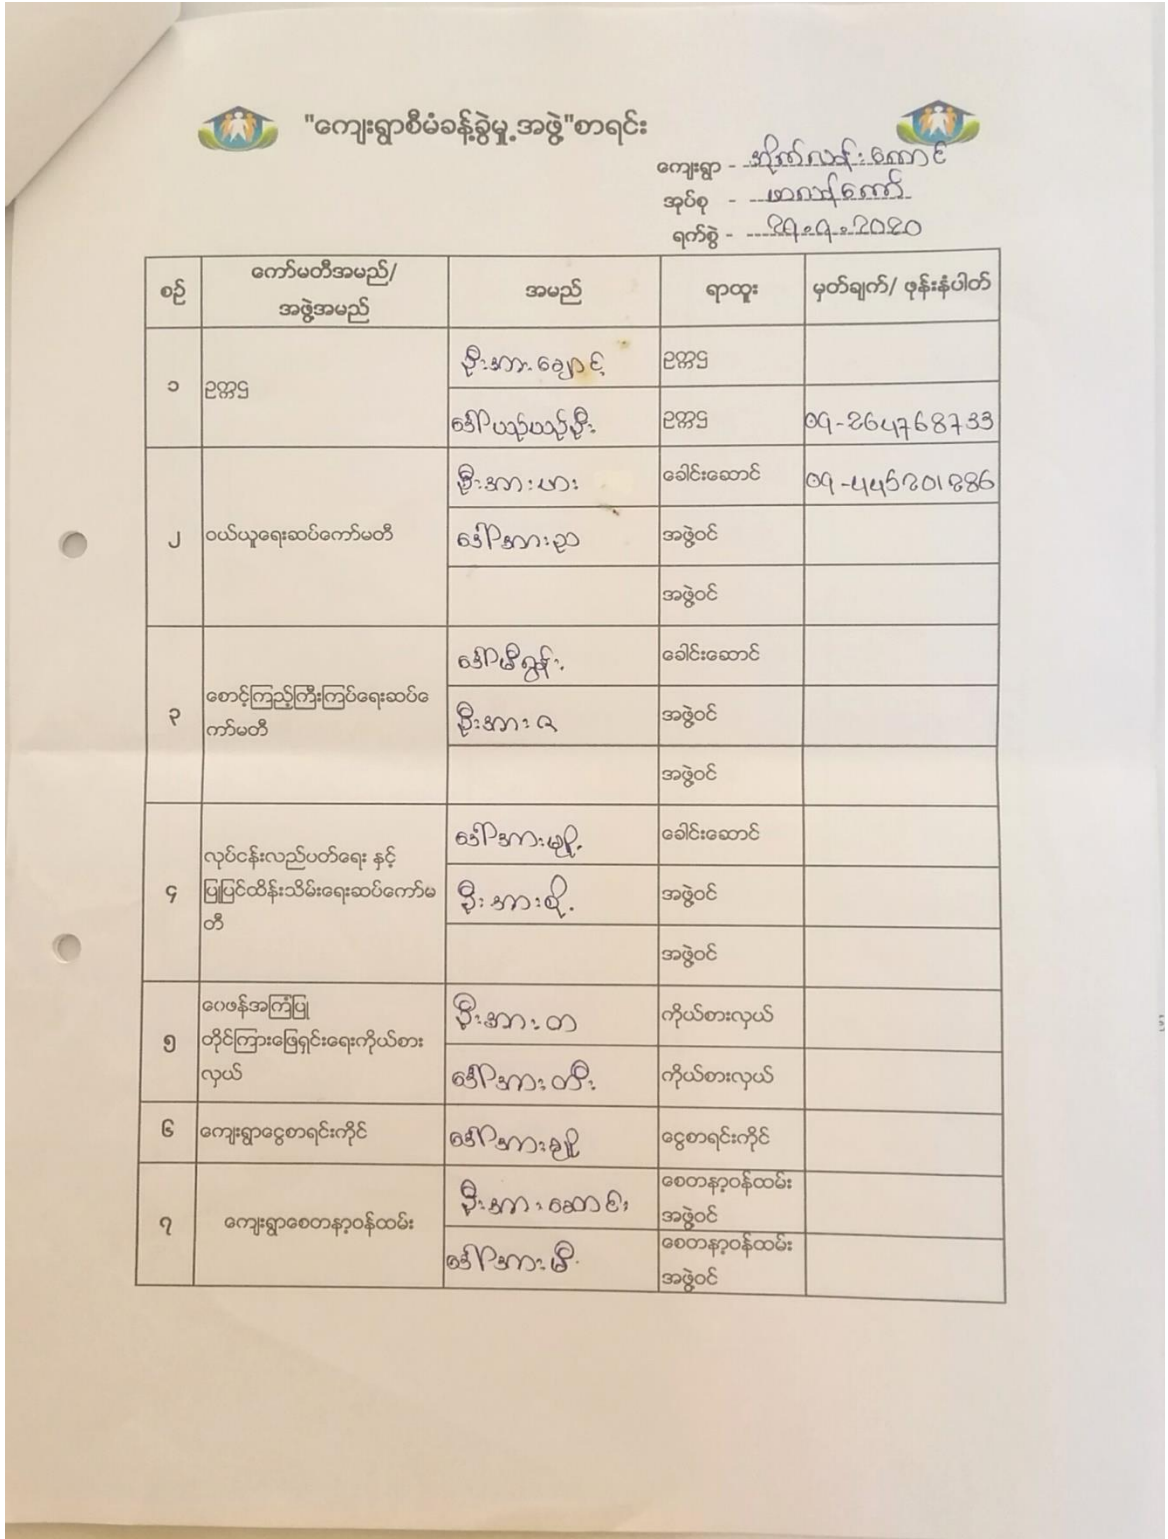 "ကျေးရွာစီမံခန့်ခွဲမှု့အဖွဲ့"စာရင်း
ကျေးရွာ -
အုပ်စု -
ရက်စွဲ - 29.9.2020
စဉ် ကော်မတီအမည်/ အဖွဲ့အမည် အမည် ရာထူး မှတ်ချက်/ ဖုန်းနံပါတ်
၁ ဥက္ကဌ ဦးအားချောင့် ဥက္ကဌ
ဒေါ်ပည်ပည်ဦး ဥက္ကဌ 09-264768733
၂ ဝယ်ယူရေးဆပ်ကော်မတီ ဦးအားယား ခေါင်းဆောင် 09-445201286
ဒေါ်အားညာ အဖွဲ့ဝင်
အဖွဲ့ဝင်
၃ စောင့်ကြည့်ကြီးကြပ်ရေးဆပ်ကော်မတီ ခေါင်းဆောင်
ဦးအားဇ အဖွဲ့ဝင်
အဖွဲ့ဝင်
၄ လုပ်ငန်းလည်ပတ်ရေး နှင့်
ပြုပြင်ထိန်းသိမ်းရေးဆပ်ကော်မတီ ခေါင်းဆောင်
ဦးအားစို့ အဖွဲ့ဝင်
အဖွဲ့ဝင်
၅ ဝေဖန်အကြံပြု
တိုင်ကြားဖြေရှင်းရေးကိုယ်စား
လှယ် ဦးအားတ ကိုယ်စားလှယ်
ဒေါ်အားတီး ကိုယ်စားလှယ်
၆ ကျေးရွာငွေစာရင်းကိုင် ငွေစာရင်းကိုင်
၇ ကျေးရွာစေတနာ့ဝန်ထမ်း ဦးအားဆောင်း စေတနာ့ဝန်ထမ်း
အဖွဲ့ဝင်
ဒေါ်အားမီး စေတနာ့ဝန်ထမ်း
အဖွဲ့ဝင်